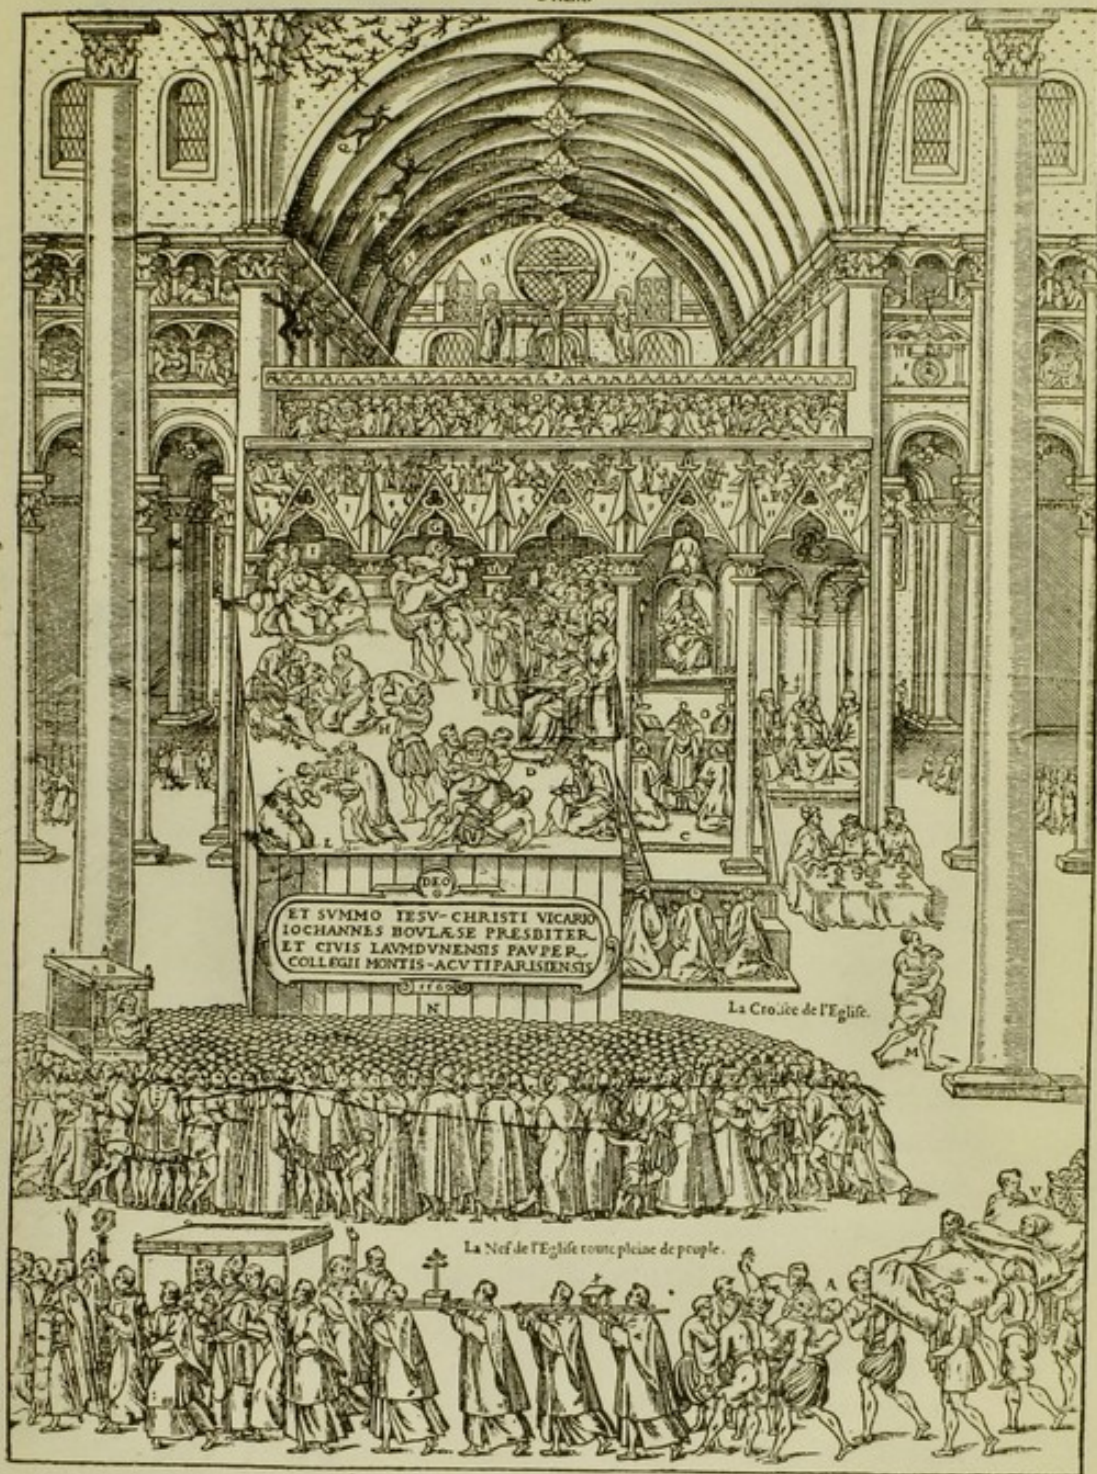 DEO
ET SVMMO IESV-CHRISTI VICARIO
IOCHANNES BOVLÆSE PRESBITER
ET CIVIS LAVMDVNENSIS PAVPER
COLLEGII MONTIS-ACVTI PARISIENSIS
N
La Croisée de l'Eglise.
La Nef de l'Eglise toute pleine de peuple.
P
G
H
D
C
L
B
M
A
V